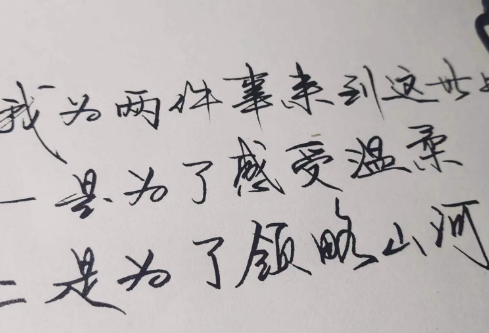 我为两件事来到这世
一是为了感受温柔
二是为了领略山河